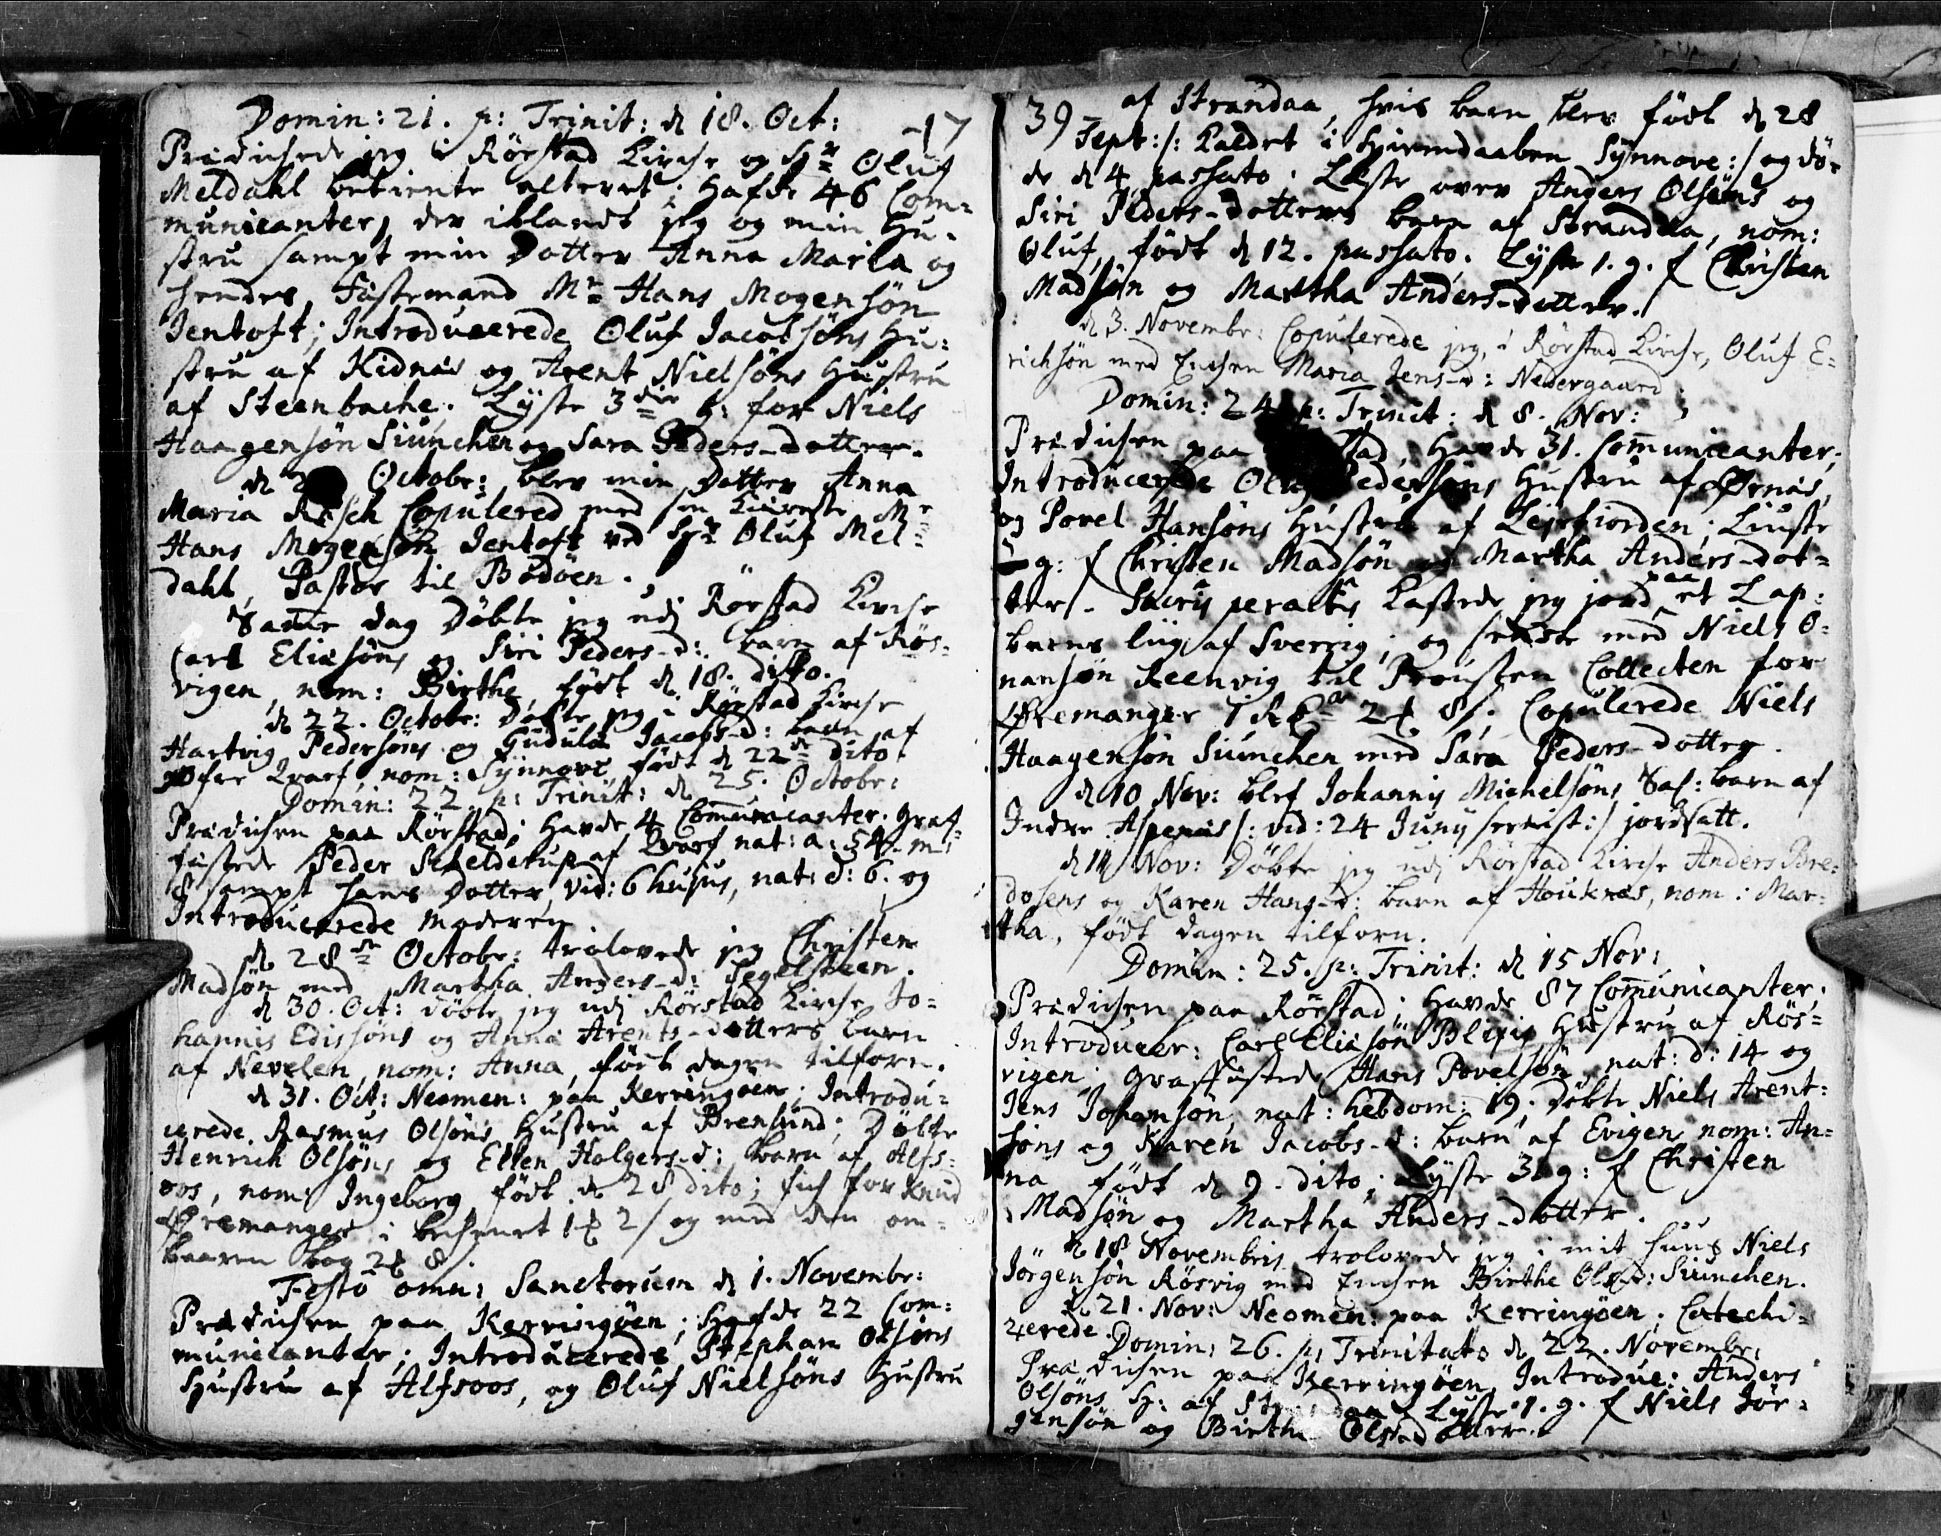 Domin: 21. p: Trinit: d 18. Oct:
-17
Prædichede jeg i Rörstad Kirche og Hr Oluf
Meldahl betiente alteret; Hafde 46 Com=
municanter, der iblandt jeg og min Hu-
stru sampt min Datter Anna Maria og
hendes Fästemand Mr Hans Mogensön
Jentoft; Introducerede Oluf Jacobsöns Hu:
stru af Kidnæs og Arent Nielsöns Hustru
af Steenbache. Lyste 3die g: for Niels
Haagensön Siunchen og Sara Peders-dotter.
d 2 Octobr: blev min Datter Anna
Maria Rasch Copulered med sin Kiereste Mr
Hans Mogensön Jentoft ved Hr Oluf Mel=
dahl, Pastor til Bodöen.
Same dag Döbte jeg udj Rörstad Kirche
Carl Eliesöns og Siri Peders-d: barn af Rös-
vigen, nom: Birthe, födt d 18. dito.
d 22. Octobr: Döbte jeg i Rörstad Kirche
Hartvig Pedersöns og Gudula Jacobs-d: barn af
öfre Qvarf, nom: Synnove, födt d 22de dito
Domin: 22. p: Trinit: d 25. Octobr:
Prædichen paa Rörstad; Havde 4 Communicanter. Graf-
fästede Peder Scheldetup af Qvarf nat: a: 54. m:
8 sampt hans Datter, vid: 6 hujus, nat: d: 6. og
Introducerede Moderen
d 28de Octobr: trolovede jeg Christen
Madsön med Martha Anders-d: Segelsteen.
d 30. Oct: döbte jeg udj Rörstad Kirche Jo=
hannis Edissöns og Anna Arents-dotters barn
af Nevelen, nom: Anna, födt dagen tilforn.
d 31. Oct: Neomen: paa Kerringöen; Introdu=
cerede Rasmus Olsöns Hustru af Brensund; Döbte
Henrich Olsöns og Ellen Holgers-d: barn af Alfs=
oos, nom: Ingeborg födt d 28 dito; fich for Knud
Öremanger i bechenet 1 2 og med den om=
baaren bog 2 8
Festo omn: Sanctorum d 1. Novembr:
Prædichen paa Kerringöen; Hafde 22 Com:
municanter; Introducerede Stephan Olsöns
Hustru af Alfsoos, og Oluf Nielsöns Hustru
39
af Strandaa, hvis barn blev födt d 28
Sept: /: Kaldet i Hiemdaaben Synnove :/ og dö=
de d 4 passato. Læste over Anders Olsöns og
Siri Peders-dotters barn af Strandaa, nom:
Oluf, födt d 12. passato. Lyste 1. g. f Christen
Madsön og Martha Anders-dotter.
d 3. Novembr: Copulerede jeg, i Rörstad Kirche, Oluf E=
richsön med Enchen Maria Jens-d: Nedergaard
Domin: 24 p: Trinit: d 8. Nov:
Prædichen paa Havde 31. Communicanter;
Introducerede Oluf Pedersöns Hustru af Örnäs,
og Povel Hansöns Hustru af Leirfiorden; Liuste
g: f Christen Madsön og Martha Anders-dot=
ter. Sacris peractis Kastede jeg jord paa et Lap:
barns liig af Sverrig; og sendte med Niels O=
nansön Reenvig til Prousten Collecten for
Öremanger 7 Rd 2 8 s. Copulerede Niels
Haagensön Siunchen med Sara Peders-Dotter.
d 10 Nov: blef Johannis Michelsöns Sal: barn af
Indre Aspenäs /: vid: 24 Junij :/ jordsatt.
d 14 Nov: Döbte jeg udj Rörstad Kirche Anders Bre=
dosens og Karen Hans-d: barn af Houknæs, nom: Mar=
tha, födt dagen tilforn.
Domin: 25. p: Trinit: d 15 Nov:
Prædichen paa Rörstad; Havde 87 Communicanter;
Introducer: Carl Eliesön Blixis Hustru af Rös=
vigen; Graffästede Hans Povelsön, nat: d: 14 og
Jens Johansön, nat: hebdom: 19; Döbte Niels Arent:
söns og Karen Jacobs-d: barn af Evigen, nom: An=
na födt d 9. dito; Lyste 3. g: f Christen
Madsön og Martha Anders-dotter.
d 18 Novembris trolovede jeg i mit huus Niels
Jörgensön Rösvig med Enchen Birthe Ols-d: Siunchen.
d 21. Nov: Neomen: paa Kerringöen; Catechi=
zerede.
Domin: 26. p: Trinitats d 22. Novembr:
Prædichen paa Kerringöen, Introduc: Anders
Olsöns H: af Lyste 1. g. f Niels Jör=
gensön og Birthe Olsdotter.